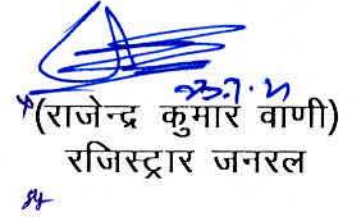 23.7.21
(राजेन्द्र कुमार वाणी)
रजिस्ट्रार जनरल